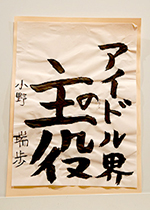 アイドル界
の
主役
小野瑞歩